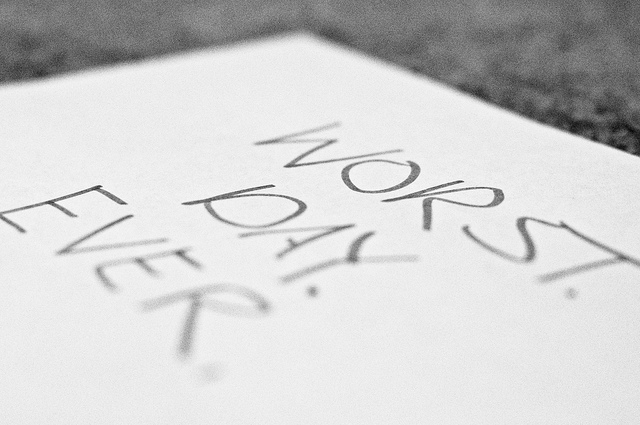 WORST.
DAY.
EVER.